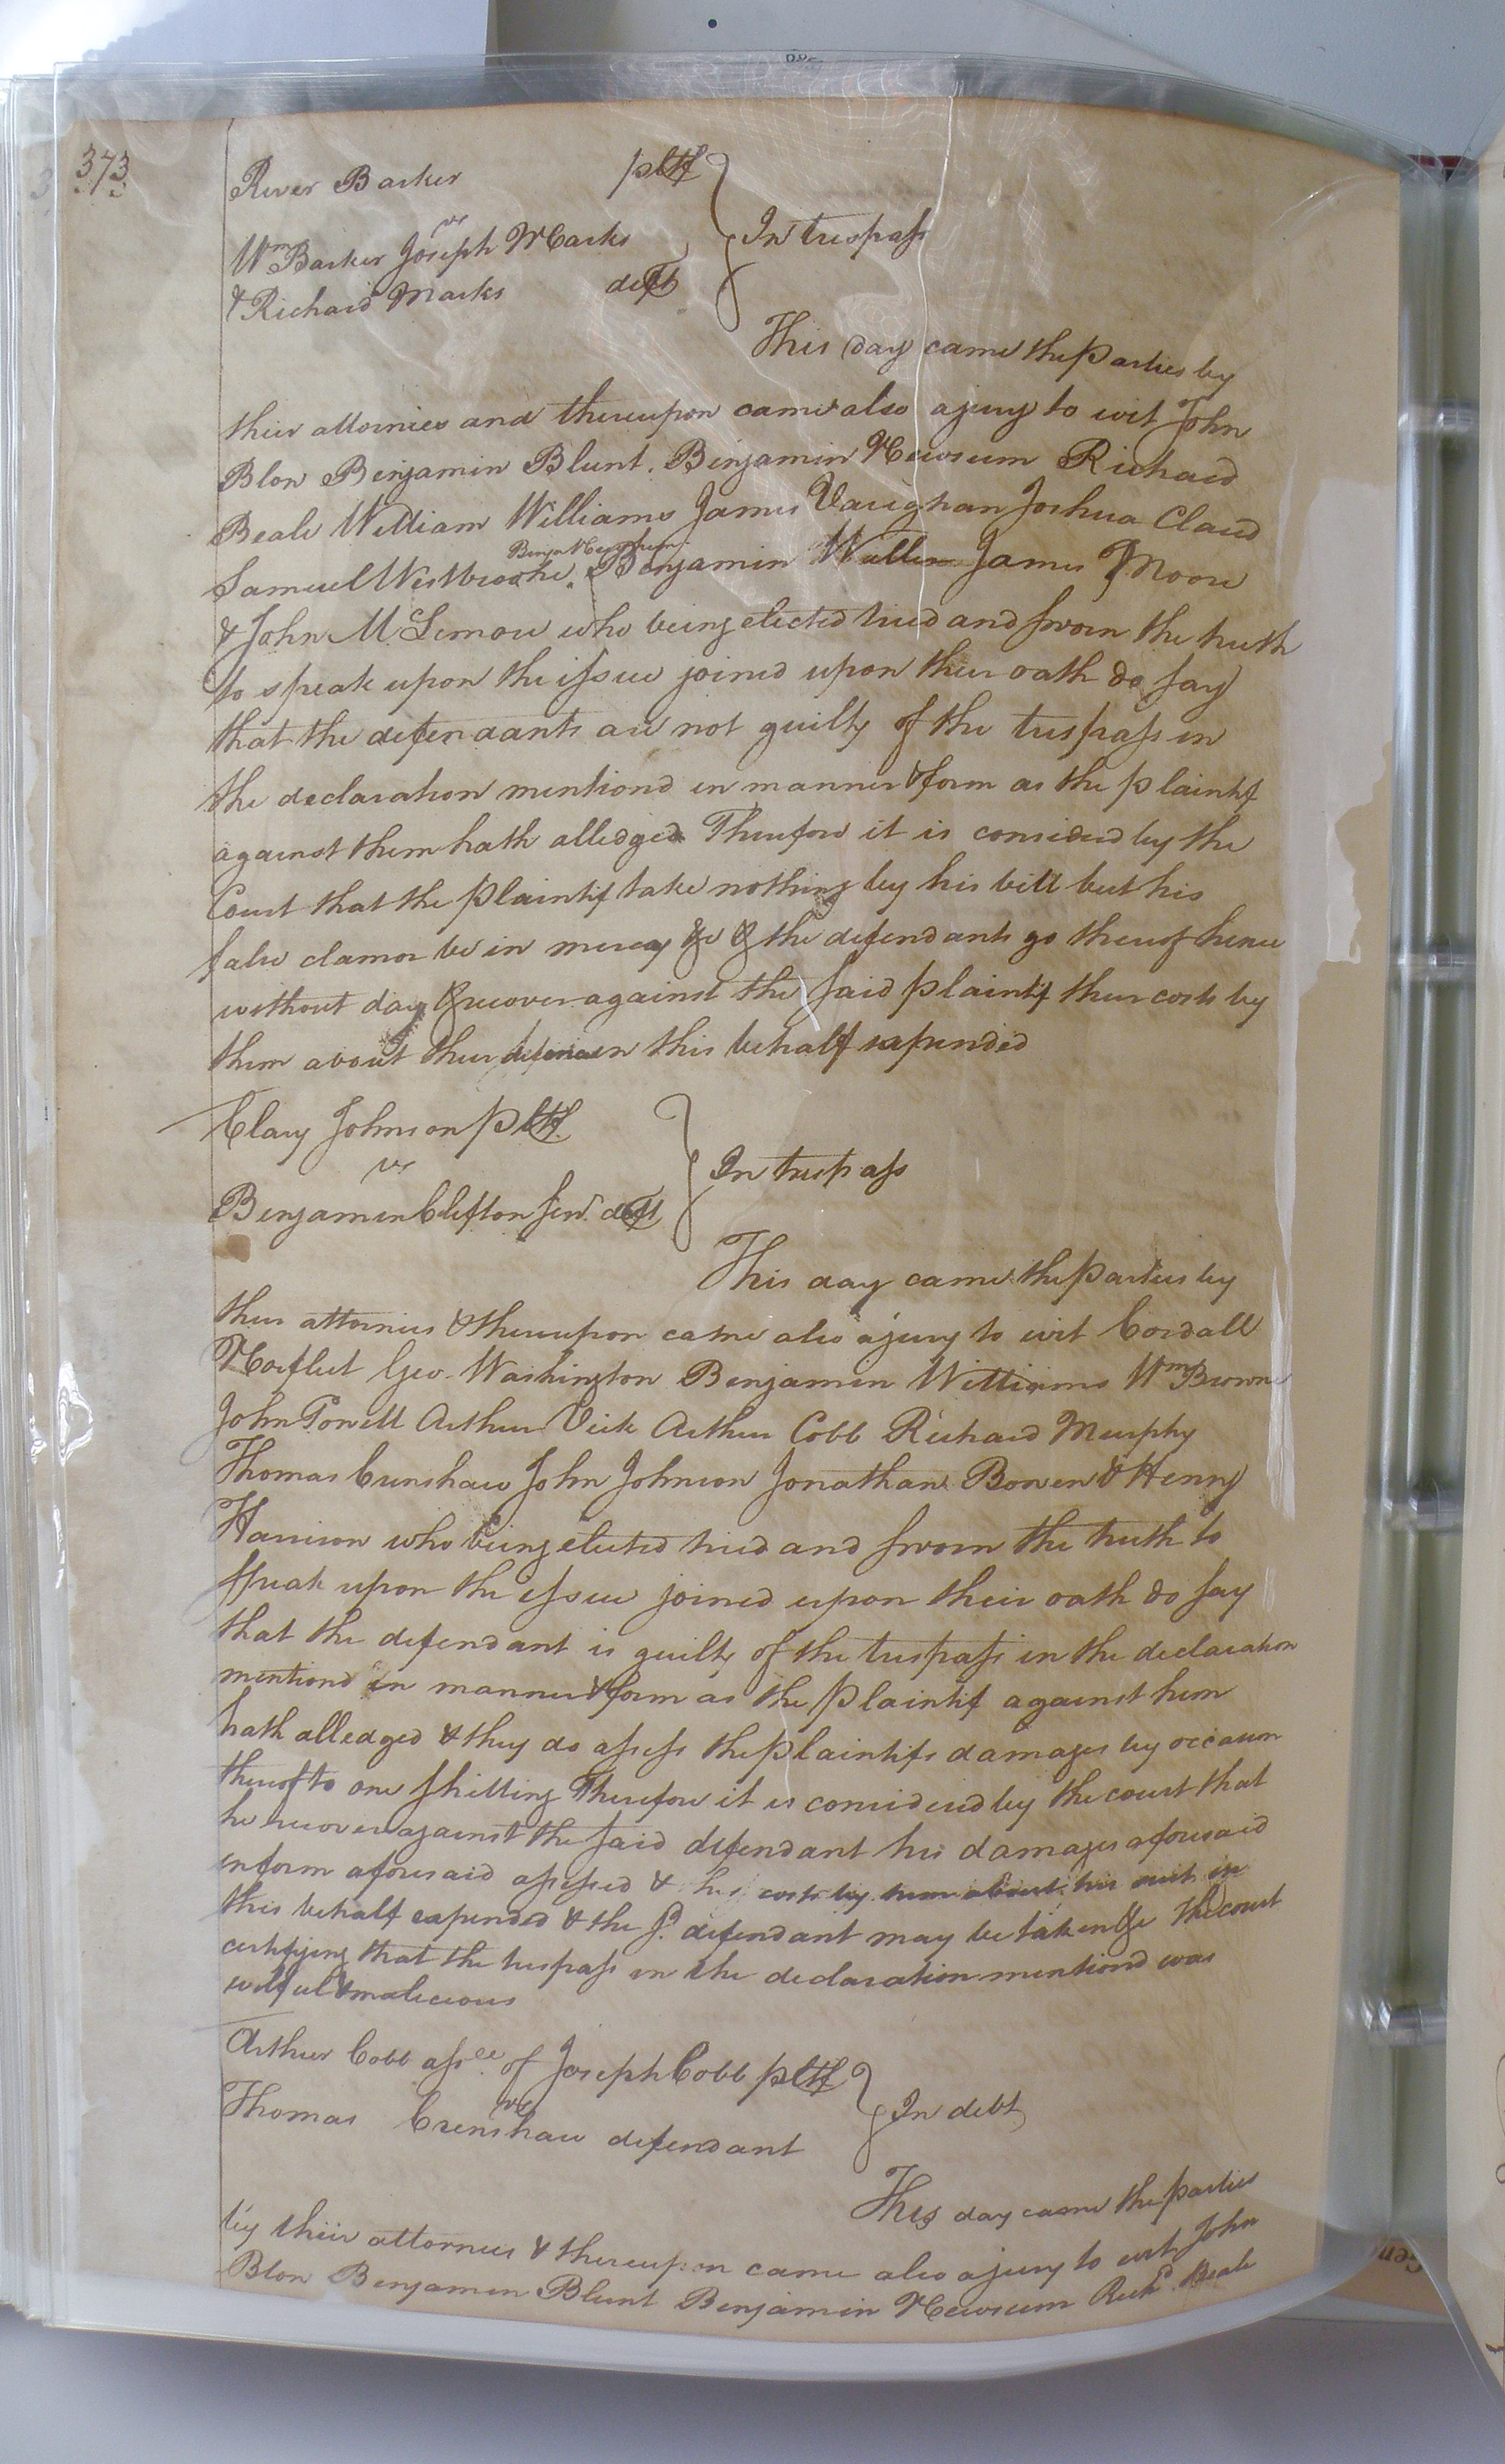 373
River Barker pltf
vs
Wm Barker Joseph Marks
& Richard Marks deft
In trespass
This day came the parties by
their attornies and thereupon came also a jury to wit John
Blow Benjamin Blunt. Benjamin Newsum Richard
Beale William Williams James Vaughan Joshua Claud
Samuel Westbrooke. Benjamin Waller James Moore
& John McLemore who being elected tried and sworn the truth
to speak upon the issue joined upon their oath do say
that the defendants are not guilty of the trespass in
the declaration mentiond in manner & form as the plaintif
against them hath alledged Therefore it is considerd by the
Court that the plaintif take nothing by his bill but his
false clamor be in mercy &c & the defendants go thereof hence
without day & recover against the said plaintif their costs by
them about their defence in this behalf expended
Clary Johnson pltf
vs
Benjamin Clifton Senr. deft
In trespass
This day came the parties by
their attornies & thereupon came also a jury to wit Cordall
Norfleet Geo. Washington Benjamin Williams Wm Browne
John Powell Arthur Vick Arthur Cobb Richard Murphy
Thomas Crenshaw John Johnson Jonathan Bowen & Henry
Harrison who being elected tried and sworn the truth to
speak upon the issue joined upon their oath do say
that the defendant is guilty of the trespass in the declaration
mentiond in manner & form as the plaintif against him
hath alledged & they do assess the plaintifs damages by occasion
thereof to one shilling Therefore it is considerd by the court that
he recover against the said defendant his damages aforesaid
in form aforesaid assessed & his costs by him about his suit in
this behalf expended & the sd. defendant may be taken &c The court
certifying that the trespass in the declaration mentiond was
wilful & malicious
Arthur Cobb assee. of Joseph Cobb pltf
vs
Thomas Crenshaw defendant
In debt
This day came the parties
by their attornies & thereupon came also a jury to wit John
Blow Benjamin Blunt Benjamin Newsum Richd. Beale